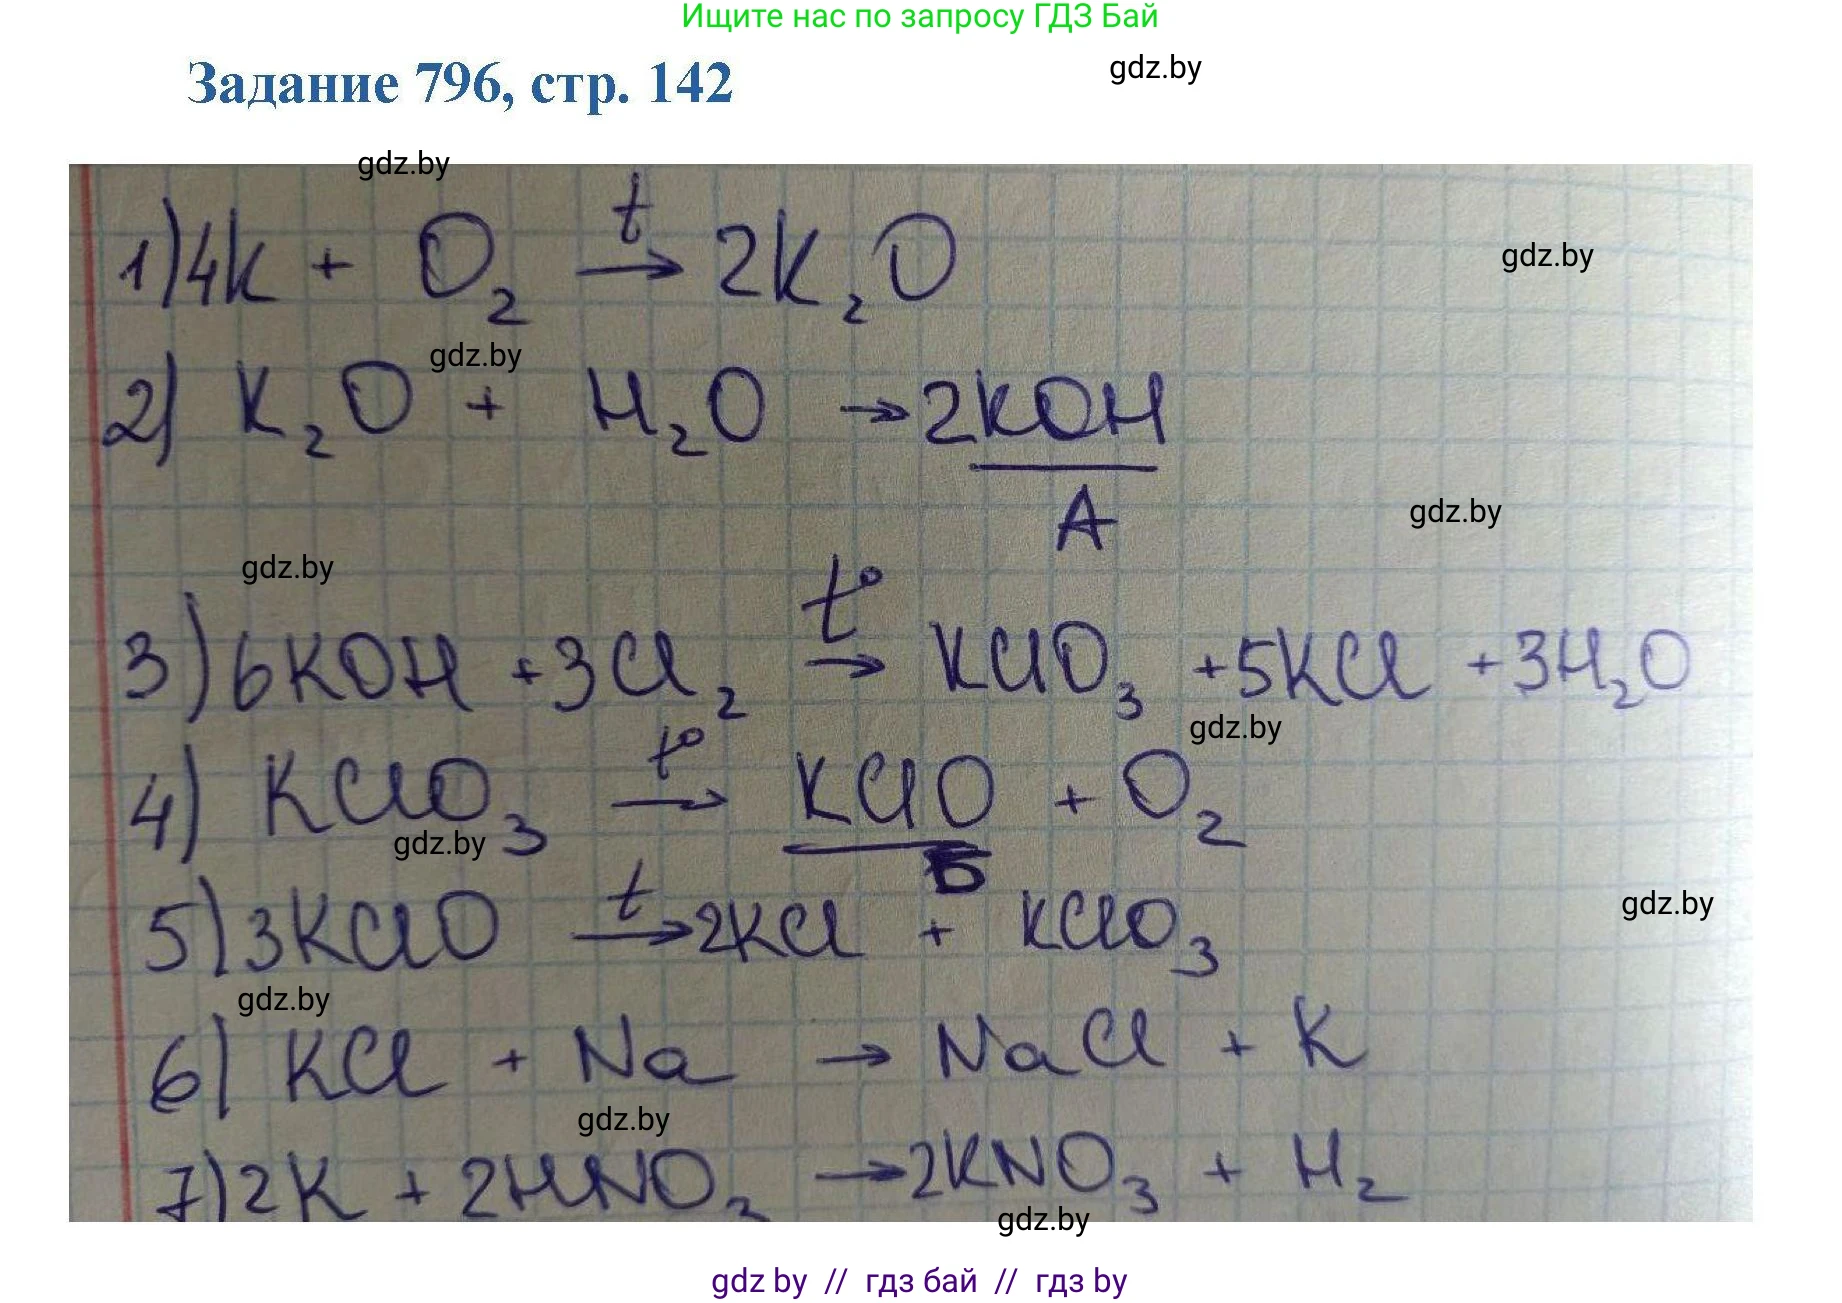 Ищите нас по запросу ГДЗ Бай
gdz.by
Задание 796, стр. 142
gdz.by
1) 4K + O₂ t→ 2K₂O
gdz.by
gdz.by
2) K₂O + H₂O → 2KOH
A
gdz.by
gdz.by
3) 6KOH + 3Cl₂ t°→ KClO₃ + 5KCl + 3H₂O
gdz.by
4) KClO₃ t°→ KClO + O₂
gdz.by
Б
5) 3KClO t→ 2KCl + KClO₃
gdz.by
gdz.by
6) KCl + Na → NaCl + K
gdz.by
7) 2K + 2HNO₃ → 2KNO₃ + H₂
gdz.by
gdz by // гдз бай // гдз by